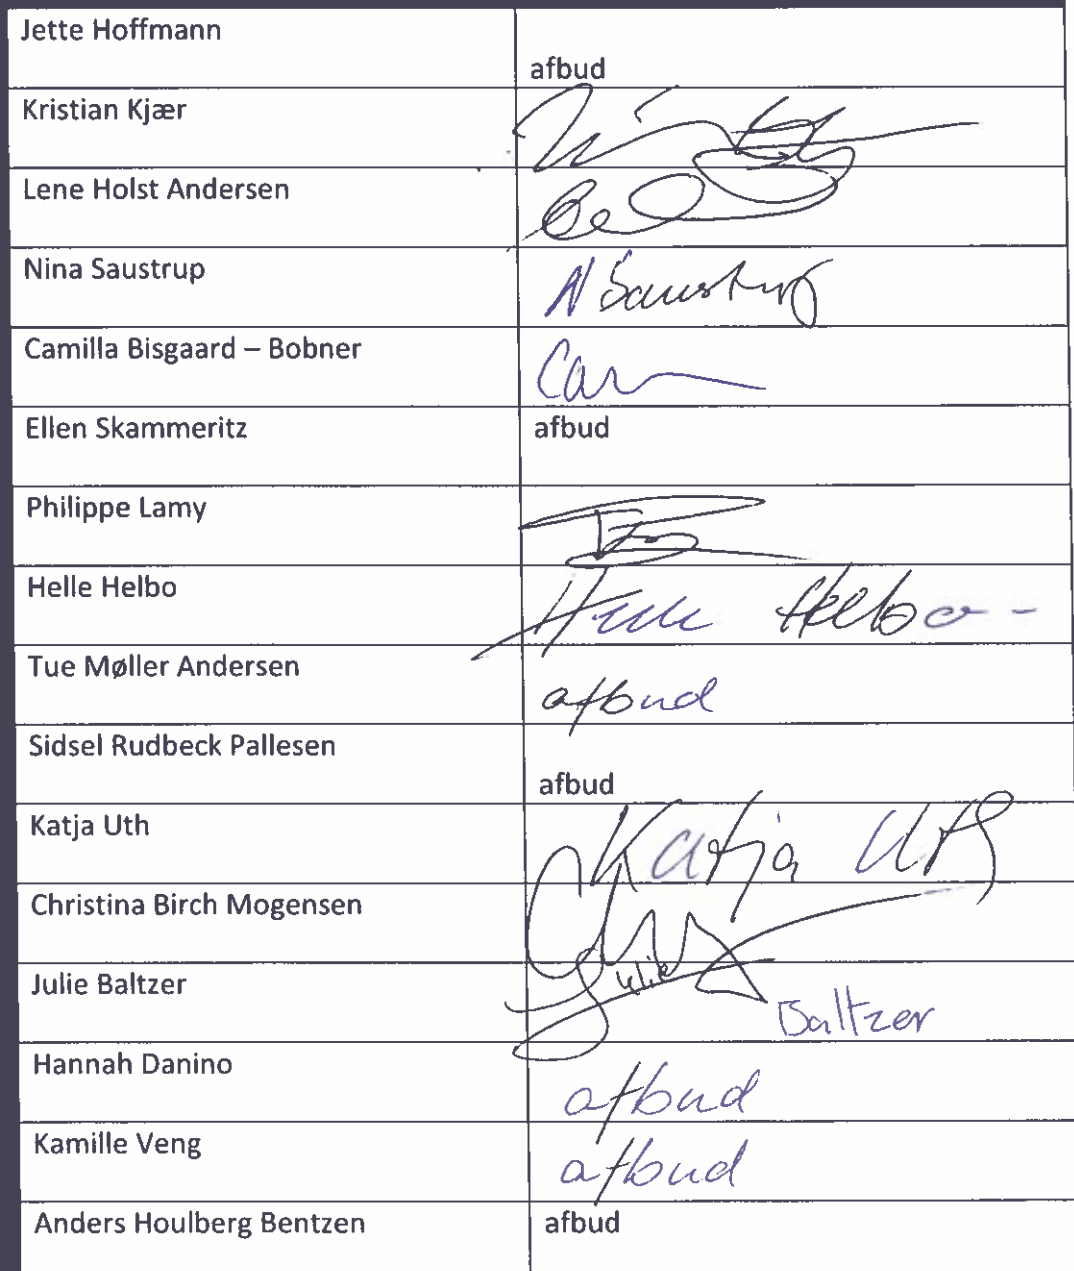 Jette Hoffmann
afbud
Kristian Kjær
Lene Holst Andersen
Nina Saustrup
N Saustrup
Camilla Bisgaard – Bobner
Ellen Skammeritz
afbud
Philippe Lamy
Helle Helbo
Helle Helbo
Tue Møller Andersen
afbud
Sidsel Rudbeck Pallesen
afbud
Katja Uth
Katja Uth
Christina Birch Mogensen
Julie Baltzer
Julie Baltzer
Hannah Danino
afbud
Kamille Veng
afbud
Anders Houlberg Bentzen
afbud